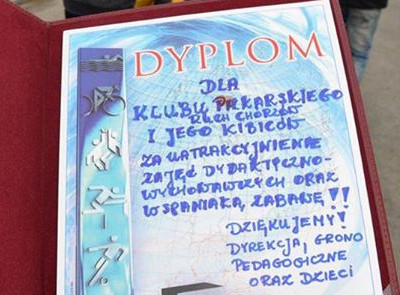 DYPLOM
DLA
KLUBU PIŁKARSKIEGO
RUCH CHORZÓW
I JEGO KIBICÓW
ZA UATRAKCYJNIENIE
ZAJĘĆ DYDAKTYCZNO-
WYCHOWAWCZYCH ORAZ
WSPANIAŁĄ ZABAWĘ!!
DZIĘKUJEMY!
DYREKCJA, GRONO
PEDAGOGICZNE
ORAZ DZIECI